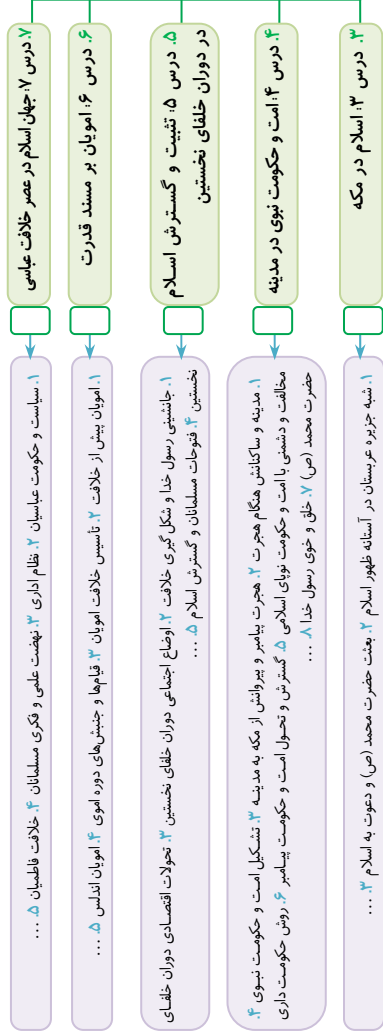 ۳. درس ۳: اسلام در مکه
۱. شبه جزیره عربستان در آستانه ظهور اسلام ۲. بعثت حضرت محمد (ص) و دعوت به اسلام ۳. ...
۴. درس ۴: امت و حکومت نبوی در مدینه
۱. مدینه و ساکنانش هنگام هجرت ۲. هجرت پیامبر و پیروانش از مکه به مدینه ۳. تشکیل امت و حکومت نبوی ۴.
مخالفت و دشمنی با امت و حکومت نوپای اسلامی ۵. گسترش و تحول امت و حکومت پیامبر ۶. روش حکومت داری
حضرت محمد (ص) ۷. خلق و خوی رسول خدا ۸. ...
۵. درس ۵: تثبیت و گسترش اسلام
در دوران خلفای نخستین
۱. جانشینی رسول خدا و شکل گیری خلافت ۲. اوضاع اجتماعی دوران خلفای نخستین ۳. تحولات اقتصادی دوران خلفای
نخستین ۴. فتوحات مسلمانان و گسترش اسلام ۵. ...
۶. درس ۶: امویان بر مسند قدرت
۱. امویان پیش از خلافت ۲. تأسیس خلافت امویان ۳. قیام‌ها و جنبش‌های دوره اموی ۴. امویان اندلس ۵. ...
۷. درس ۷: جهان اسلام در عصر خلافت عباسی
۱. سیاست و حکومت عباسیان ۲. نظام اداری ۳. نهضت علمی و فکری مسلمانان ۴. خلافت فاطمیان ۵. ...